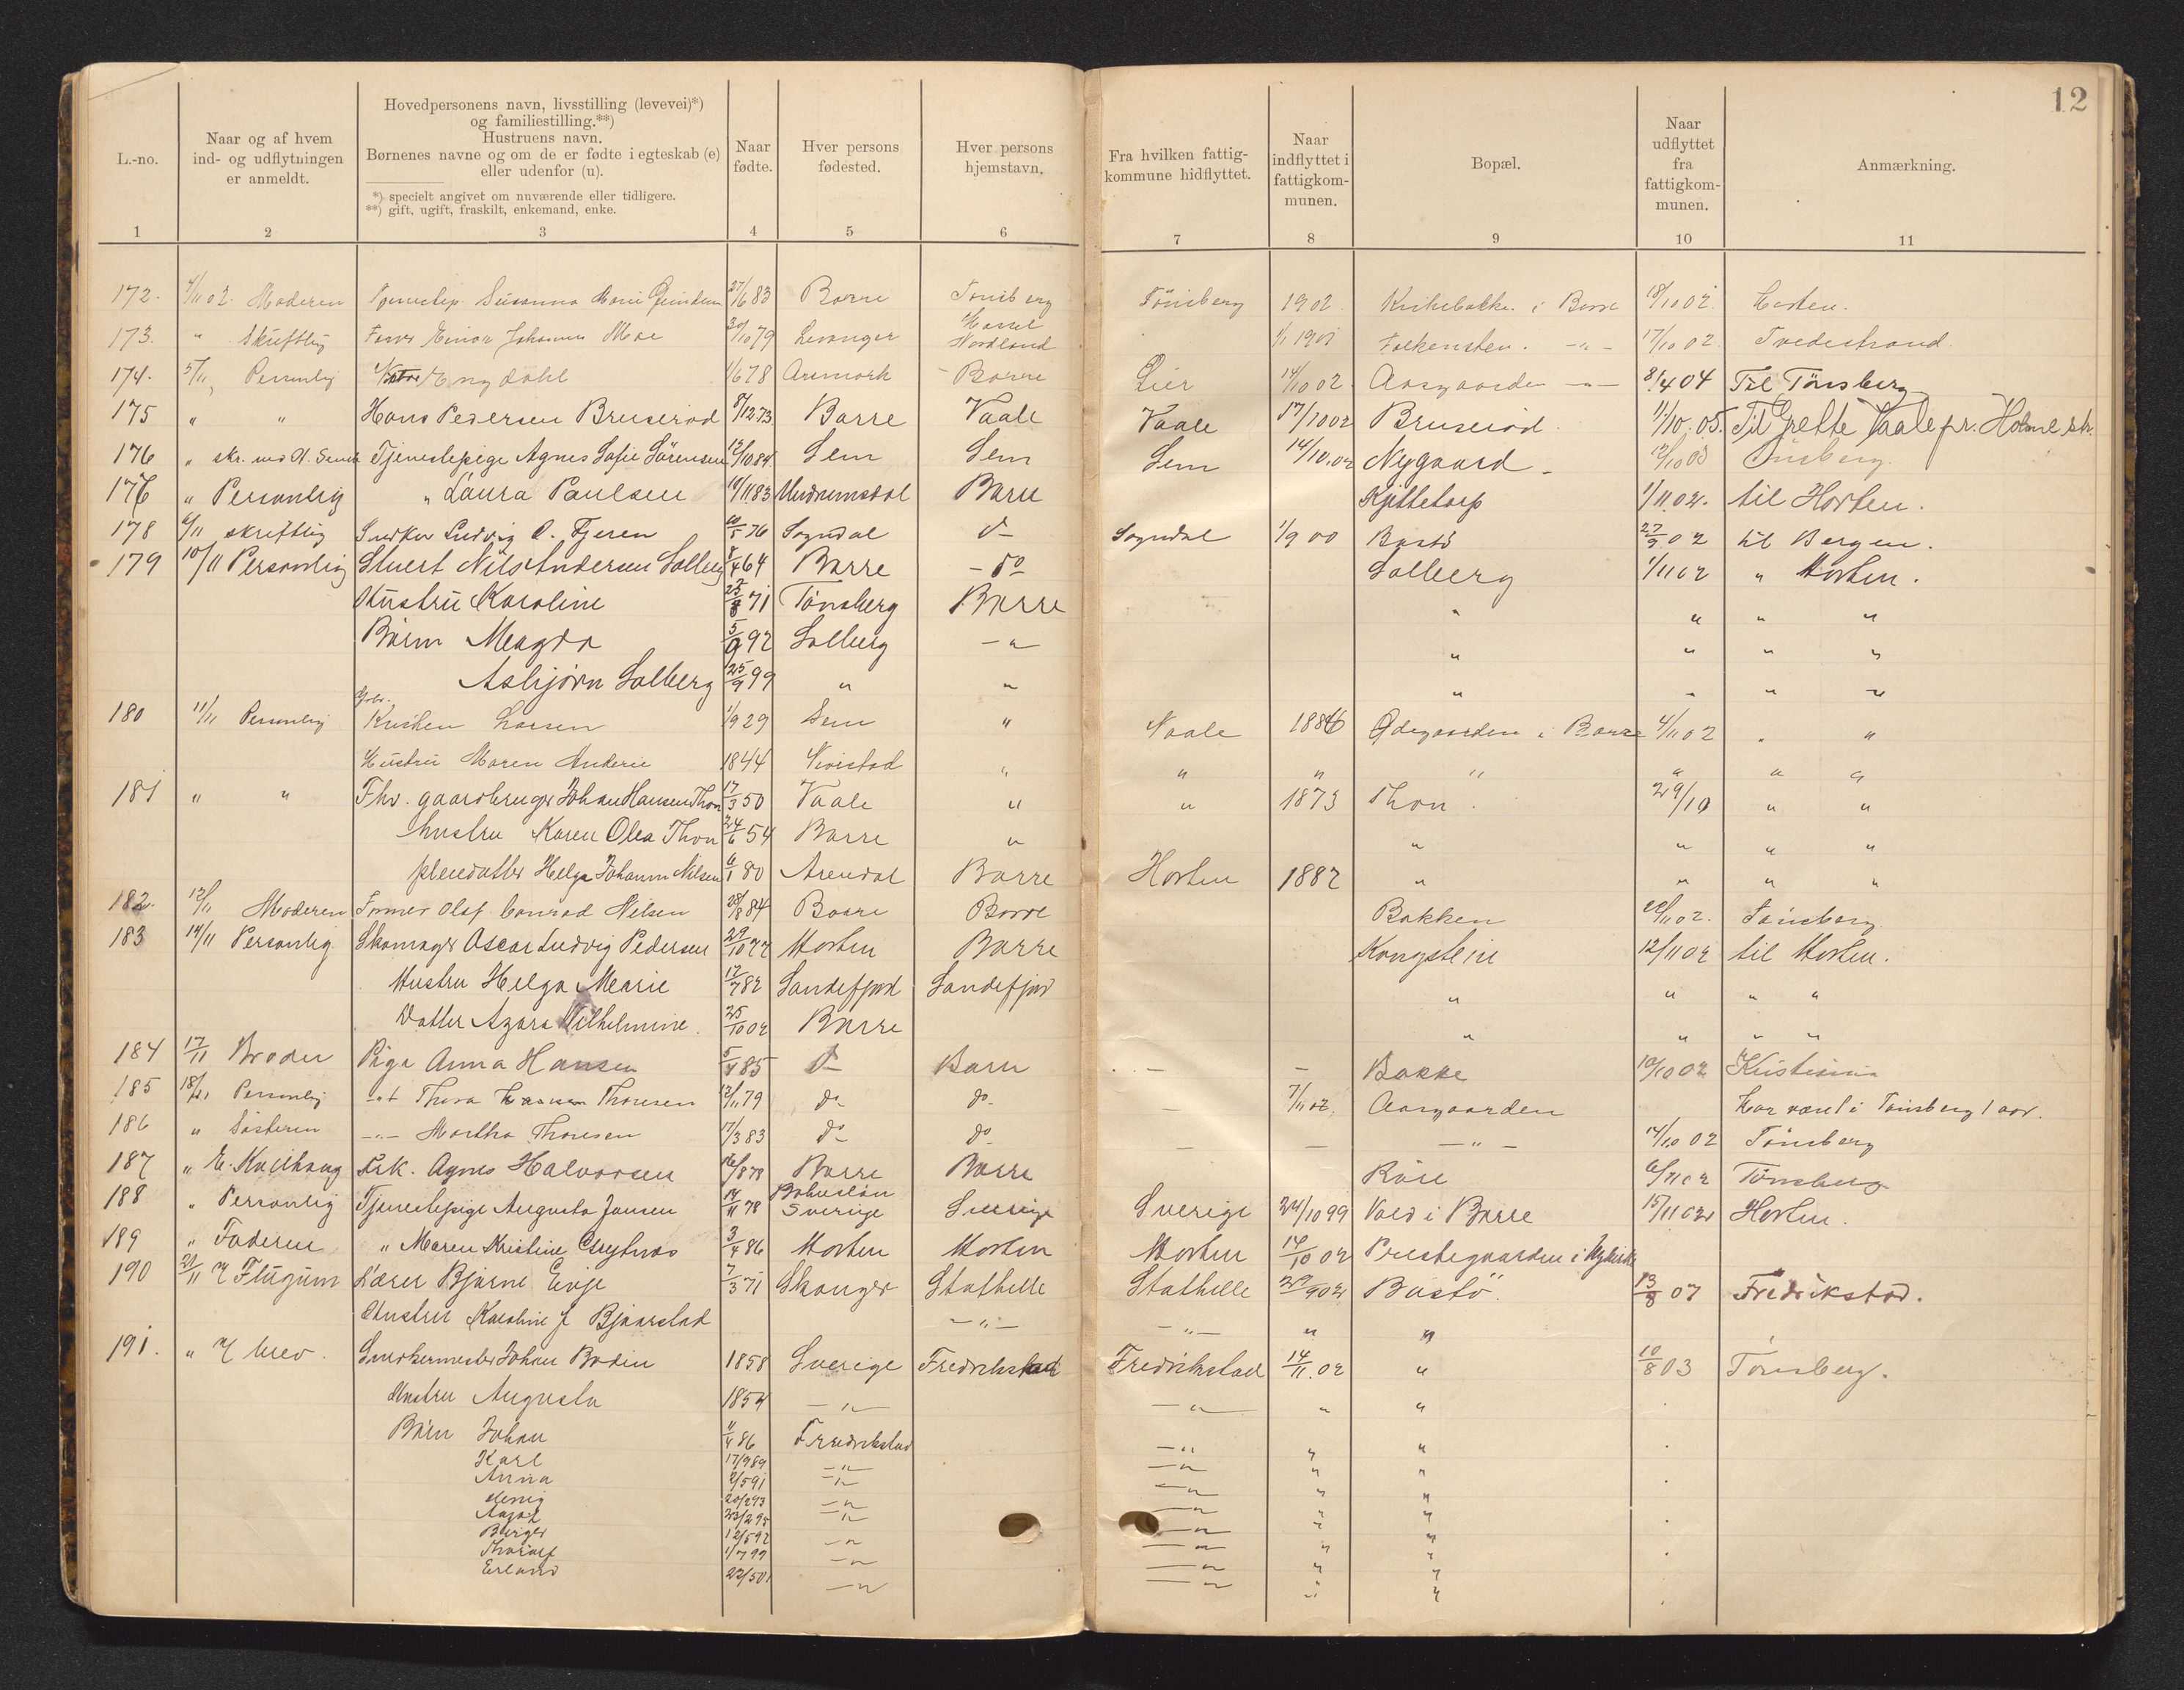 12
L.-no.
Naar og af hvem ind- og udflytningen er anmeldt.
Hovedpersonens navn, livsstilling (levevei)*) og familiestilling.**)
Hustruens navn.
Børnenes navne og om de er fødte i egteskab (e) eller udenfor (u).
*) specielt angivet om nuværende eller tidligere.
**) gift, ugift, fraskilt, enkemand, enke.
Naar fødte.
Hver persons fødested.
Hver persons hjemstavn.
Fra hvilken fattigkommune hidflyttet.
Naar indflyttet i fattigkommunen.
Bopæl.
Naar udflyttet fra fattigkommunen.
Anmærkning.
1 2 3 4 5 6 7 8 9 10 11
172. 4/11 02. Moderen Susanna Marie 27/6 83 Borre Tønsberg Tönsberg 1902. i Borre 18/10 02 Horten.
173. " Skriftlig Einar Johannes Moe 30/10 79 Levanger Nordland 1/1 1901 Falkensten. -"- 17/10 02. Tvedestrand.
174. 5/11 Personlig Engdahl 1/6 78 Aremark Borre Lier 14/10 02. Aasgaarden -"- 8/4 04 Til Tönsberg
175 " " Hans Pedersen Bruserød 8/12 73 Borre Vaale Vaale 17/10 02 Bruseröd. 11/10. 05. Til Grette Vaale pr. Holmestr.
176 " skr. Tjenestepige Agnes Sofie Sörensen 12/10 84. Sem Sem Sem 14/10.02 Nygaard - 12/10 03 Tönsberg.
176 " Personlig " Laura Paulsen 14/11 83 Undrumsdal Borre Kjittetorp 1/11 02. til Horten.
178 6/11 skriftlig Snedker Ludvig O. Fjeren 10/5 76 Sogndal do Sogndal 1/9 00 Bastö 27/9 02 til Bergen.
179 10/11 Personlig Stuert Nils Andersen Solberg 8/4 64 Borre - do Solberg 1/11 02 " Horten.
Hustru Karoline 25/8 71 Tönsberg Borre " " " "
Börn Magda 5/9 92 Solberg - " " " " "
Asbjørn Solberg 25/9 99 " " " " " "
180 11/11 Personlig Kristen Larsen 1/9 29 Sem " Vaale 1886 Ødegaarden i Borre 4/11 02 " "
Hustru Maren Anderie 1844 " " " " " " "
181 " " Fhv. gaardbruger Johan Hansen Thon 17/3 50 Vaale " " 1873 Thon. 29/10 " "
hustru Karen Olea Thon 24/6 54 Borre " " " " "
pleiedatter Helga Johanne Nilsen 6/1 80 Arendal Borre Horten 1882 " " " "
182. 12/11 Moderen Former Olaf Conrad Nilsen 28/8 84 Borre Borre Bakken 22/11 02. Tönsberg
183 14/11 Personlig Skomager Oscar Ludvig Pedersen 29/10 77 Horten Borre Kongstein 12/11 02 til Horten.
Hustru Helga Marie 17/7 82 Sandefjord Sandefjord " " " "
Datter Azora Wilhelmine. 25/10 02 Borre " " " "
184 17/11 Broder Pige Anna Hansen 5/4 85 do Borre - - Bakke 10/10 02 Kristiania
185 18/11 Personlig -"- Thora Thoresen 12/11 79 do do - 7/11 02. Aasgaarden Har været i Tönsberg 1 aar.
186 " Søsteren -"- Martha Thoresen 17/3 83 do do - - -"- 14/10 02 Tönsberg
187 " Frk. Agnes Halvorsen 16/8 78 Borre Borre 6/11 02 Tønsberg
188 " Personlig Tjenestepige Augusta Jansen 14/11 78 Bohuslän Sverige Sverige Sverige 24/10 99 Vold i Borre 15/11 02 Horten.
189 " Faderen " Maren Kristine 3/4 86 Horten Horten Horten 14/10 02 Prestegaarden i Nykirke
190 20/11 Lærer Bjarne Evje 7/3 71 Skanger Stathelle Stathelle 20/9 02 Bastö. 13/8 07 Fredrikstad.
Hustru Karoline J Bjaarstad -"- -"- " "
191. " Brev. Snedkermester Johan Bodin 1858 Sverige Fredrikstad Fredrikstad 14/11. 02 " 10/8 03 Tönsberg.
Hustru Augusta 1854 -"- -"- " "
Börn Johan 11/4 86 Fredrikstad -"- " "
Karl 17/9 89 -"- -"- " "
Anna 2/5 91 -"- -"- " "
20/2 93 -"- -"- " "
23/2 95 -"- -"- " "
Birger 12/5 97 -"- -"- " "
Thoralf 1/7 99 -"- -"- " "
Erland 22/5 01 -"- -"- " "